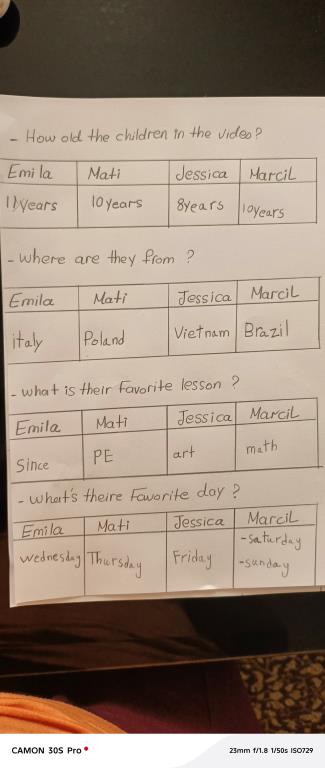 - How old the children in the video?
Emila Mati Jessica Marcil
11years 10years 8years 10years
- where are they from ?
Emila Mati Jessica Marcil
italy Poland Vietnam Brazil
- what is their Favorite lesson ?
Emila Mati Jessica Marcil
Since PE art math
- what's theire Favorite day ?
Emila Mati Jessica Marcil
wednesday Thursday Friday -saturday
-sunday
CAMON 30S Pro 23mm f/1.8 1/50s ISO729